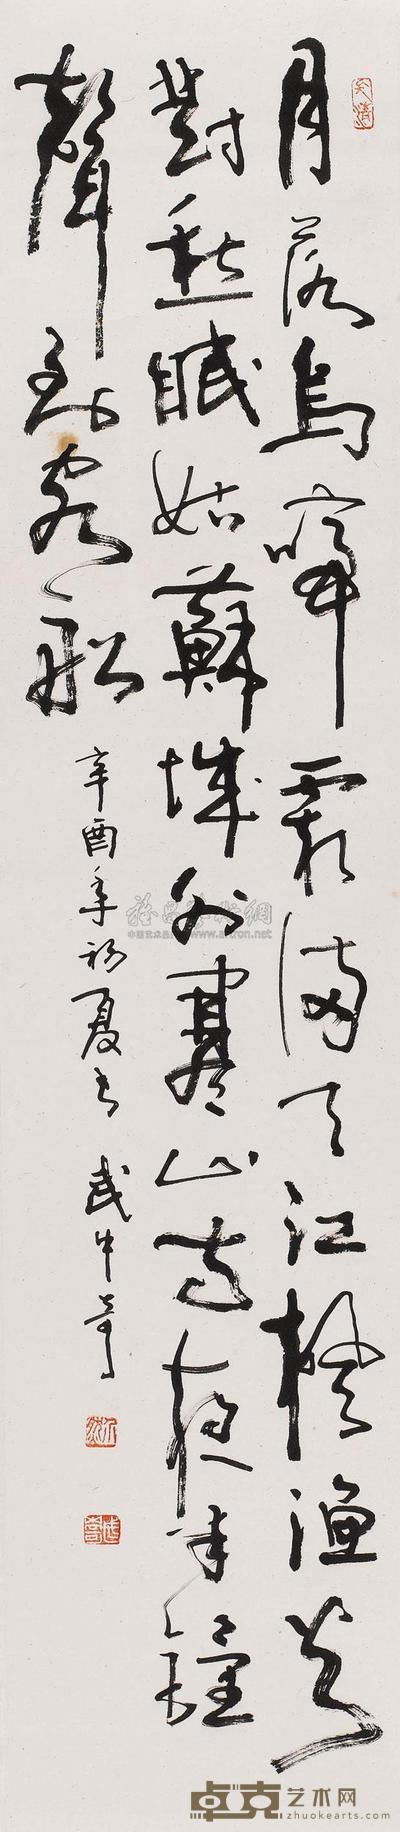 月落烏啼霜滿天江楓漁火
對愁眠姑蘇城外寒山寺夜半鐘
聲到客船
辛酉年初夏書 武中奇
雅昌藝術網
卓克艺术网
zhuokearts.com